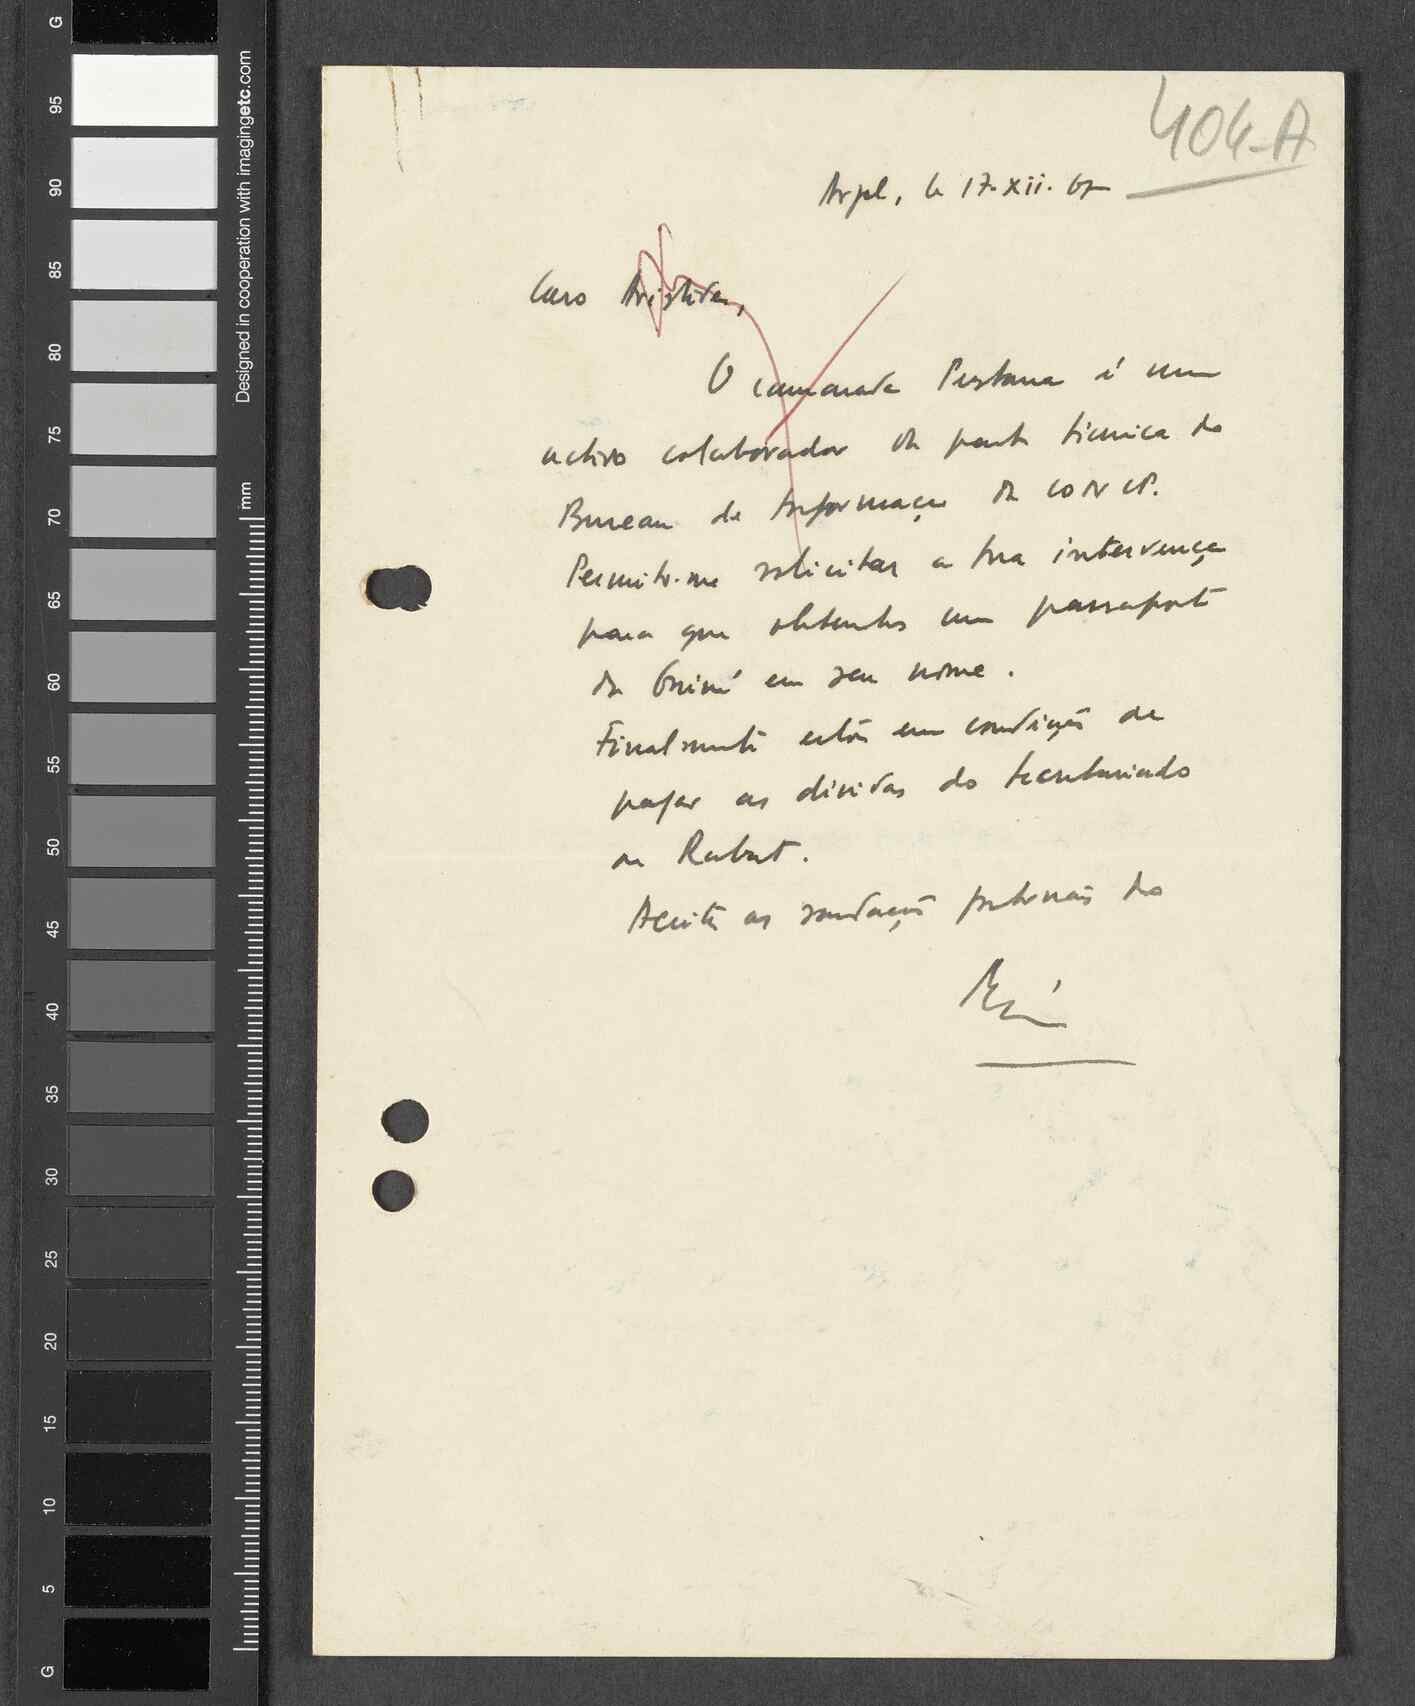 G
95
90
85
80
75
70
65
60
55
50
45
40
35
30
25
20
15
10
5
G
Designed in cooperation with imagingetc.com
mm
404-A
le 17-XII-67
Caro Aristides,
O camarada Pestana é um
activo colaborador da parte técnica do
Bureau de Informação da CONCP.
Permito-me solicitar a tua intervenção
para que obtenhas um passaporte
da Guiné em seu nome.
Finalmente estás em condições de
pagar as dívidas do Secretariado
de Rabat.
Aceite as saudações fraternais do